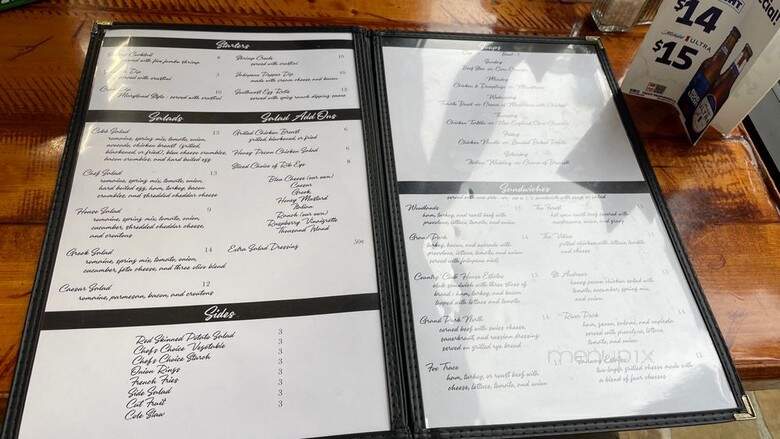 Starters
Cocktail 6
served with five jumbo shrimp
Dip 5
served with crostini
Dip 10
Maryland Style - served with crostini
Shrimp Crude 10
served with crostini
Jalapeno Popper Dip 10
made with cream cheese and bacon
Southwest Egg Rolls 12
served with spicy ranch dipping sauce
Salads
Cobb Salad 15
romaine, spring mix, tomato, onion,
avocado, chicken breast (grilled,
blackened or fried), bleu cheese crumbles,
bacon crumbles, and hard boiled egg
Chef Salad 13
romaine, spring mix, tomato, onion,
hard boiled egg, ham, turkey, bacon
crumbles, and shredded cheddar cheese
House Salad 9
romaine, spring mix, tomato, onion,
cucumber, shredded cheddar cheese,
and croutons
Greek Salad 14
romaine, spring mix, tomato, onion,
cucumber, feta cheese, and three olive blend
Caesar Salad 12
romaine, parmesan, bacon, and croutons
Salad Add Ons
Grilled Chicken Breast 6
grilled, blackened or fried
Honey Pecan Chicken Salad 6
Sliced Choice of Rib Eye 8
Bleu Cheese (our own)
Caesar
Greek
Honey Mustard
Italian
Ranch (our own)
Raspberry Vinaigrette
Thousand Island
Extra Salad Dressing 50¢
Sides
Red Skinned Potato Salad 3
Chef's Choice Vegetable 3
Chef's Choice Starch 3
Onion Rings 3
French Fries 3
Side Salad 3
Cut Fruit 3
Cole Slaw
Soups
Sunday
Monday
Chicken & Dumplings or
Wednesday
Thursday
Chicken Tortilla or New England Clam Chowder
Friday
Chicken Noodle or Loaded Baked Potato
Saturday
Italian Wedding or Cream of Broccoli
Sandwiches
Woodlands
ham, turkey, and roast beef with
provolone, lettuce, tomato, and onion
14
turkey, bacon, and avocado with
provolone, lettuce, tomato, and onion
served with jalapeno aioli
Country Club House Estates 13
club sandwich with three slices of
bread - ham, turkey, and bacon
topped with lettuce and tomato
Grand Park North 14
corned beef with swiss cheese,
sauerkraut and russian dressing
served on grilled rye bread
Fox Trace 11
ham, turkey, or roast beef with
cheese, lettuce, tomato, and onion
The Forest
hot open roast beef covered with
mushrooms, onion, and gravy
The Villas
grilled chicken with lettuce, tomato,
and cheese
St. Andrews 12
honey pecan chicken salad with
tomato, cucumber, spring mix,
and onion
River Park 14
ham, genoa, salami, and capicola
served with provolone, lettuce,
tomato, and onion
13
two-layer grilled cheese made with
a blend of four cheeses
menupix
$14
$15
Michelob
ULTRA